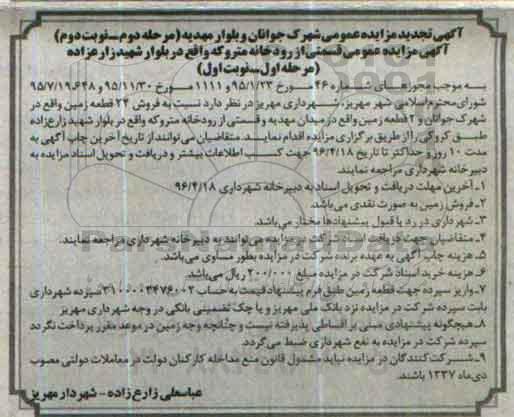 آگهی تجدید مزایده عمومی شهرک جوانان و بلوار مهدیه (مرحله دوم ـ نوبت دوم)
آگهی مزایده عمومی قسمتی از رودخانه متروکه واقع در بلوار شهید زارعزاده
(مرحله اول ـ نوبت اول)
به موجب مجوزهای شماره ۴۶ مورخ ۹۵/۱/۲۳ و ۱۱۱۱ مورخ ۹۵/۱۱/۳۰ و ۶۴۸ـ۹۵/۷/۱۹
شورای محترم اسلامی شهر مهریز، شهرداری مهریز در نظر دارد نسبت به فروش ۲۴ قطعه زمین واقع در
شهرک جوانان و ۲ قطعه زمین واقع در میدان مهدیه و قسمتی از رودخانه متروکه واقع بلوار شهید زارع‌زاده
طبق کروکی را از طریق برگزاری مزایده اقدام نماید. متقاضیان می‌توانند از تاریخ آخرین چاپ آگهی به
مدت ۱۰ روز و حداکثر تا تاریخ ۹۶/۴/۱۸ جهت کسب اطلاعات بیشتر و دریافت و تحویل اسناد مزایده به
دبیرخانه شهرداری مراجعه نمایند.
۱ـ آخرین مهلت دریافت و تحویل اسناد به دبیرخانه شهرداری ۹۶/۴/۱۸
۲ـ فروش زمین به صورت نقدی می‌باشد.
۳ـ شهرداری در رد یا قبول پیشنهادها مختار می‌باشد.
۴ـ متقاضیان جهت دریافت اسناد شرکت در مزایده می‌توانند به دبیرخانه شهرداری مراجعه نمایند.
۵ـ هزینه چاپ آگهی به عهده برنده شرکت در مزایده بطور مساوی می‌باشد.
۶ـ هزینه خرید اسناد شرکت در مزایده مبلغ ۲۰۰/۰۰۰ ریال می‌باشد.
۷ـ واریز سپرده جهت قطعه زمین طبق فرم پیشنهاد قیمت به حساب سپرده شهرداری
بابت سپرده شرکت در مزایده نزد بانک ملی مهریز و یا چک تضمینی بانکی در وجه شهرداری مهریز
۸ـ هیچگونه پیشنهادی مبنی بر اقساطی پذیرفته نیست و چنانچه وجه زمین در موعد مقرر پرداخت نگردد
سپرده شرکت در مزایده به نفع شهرداری ضبط می‌گردد.
۹ـ شرکت‌کنندگان در مزایده نباید مشمول قانون منع مداخله کارکنان دولت در معاملات دولتی مصوب
دی‌ماه ۱۳۳۷ باشند.
عباسعلی زارع‌زاده - شهردار مهریز